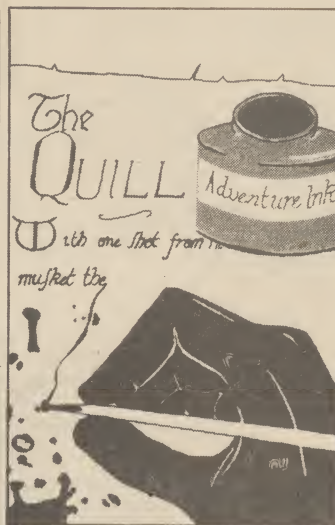 The
QUILL
Adventure Ink
With one ſhot from
muſket the